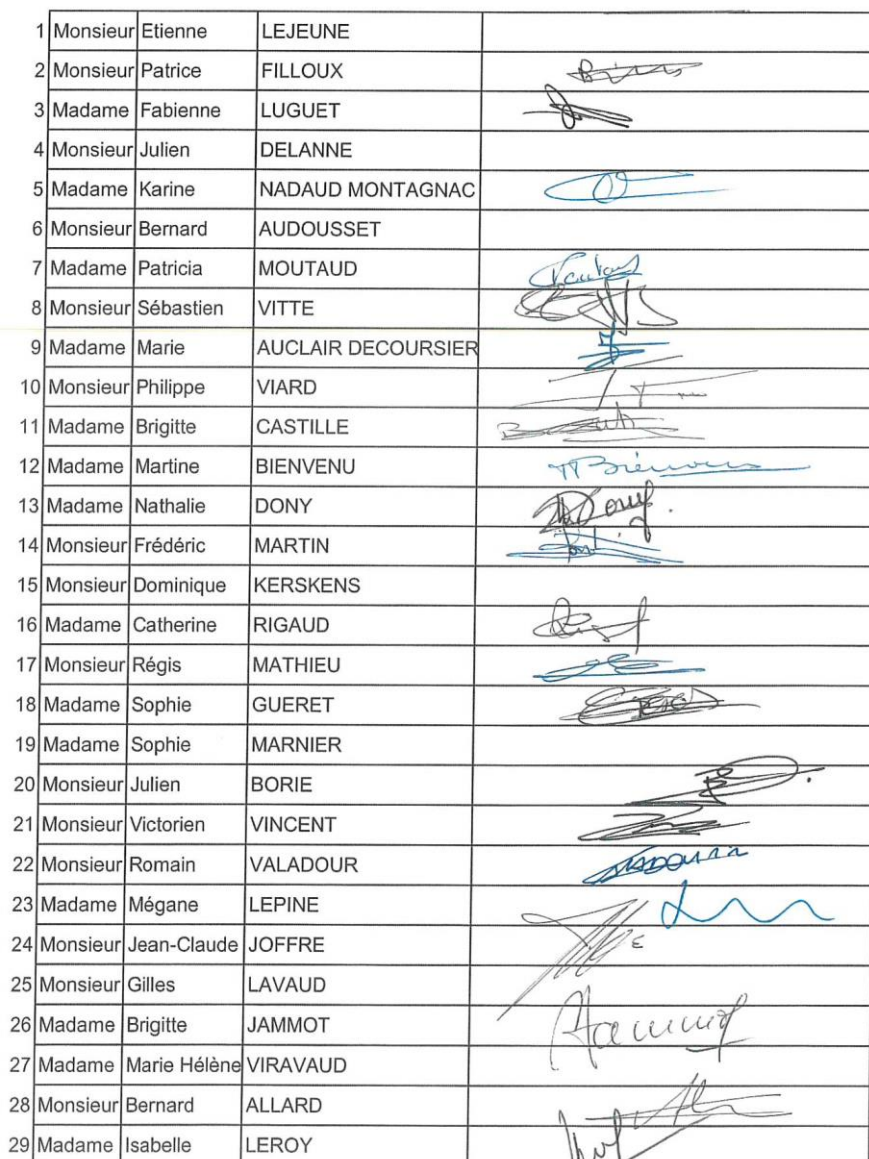 1 Monsieur Etienne LEJEUNE
2 Monsieur Patrice FILLOUX
3 Madame Fabienne LUGUET
4 Monsieur Julien DELANNE
5 Madame Karine NADAUD MONTAGNAC
6 Monsieur Bernard AUDOUSSET
7 Madame Patricia MOUTAUD
8 Monsieur Sébastien VITTE
9 Madame Marie AUCLAIR DECOURSIER
10 Monsieur Philippe VIARD
11 Madame Brigitte CASTILLE
12 Madame Martine BIENVENU
13 Madame Nathalie DONY
14 Monsieur Frédéric MARTIN
15 Monsieur Dominique KERSKENS
16 Madame Catherine RIGAUD
17 Monsieur Régis MATHIEU
18 Madame Sophie GUERET
19 Madame Sophie MARNIER
20 Monsieur Julien BORIE
21 Monsieur Victorien VINCENT
22 Monsieur Romain VALADOUR
23 Madame Mégane LEPINE
24 Monsieur Jean-Claude JOFFRE
25 Monsieur Gilles LAVAUD
26 Madame Brigitte JAMMOT
27 Madame Marie Hélène VIRAVAUD
28 Monsieur Bernard ALLARD
29 Madame Isabelle LEROY